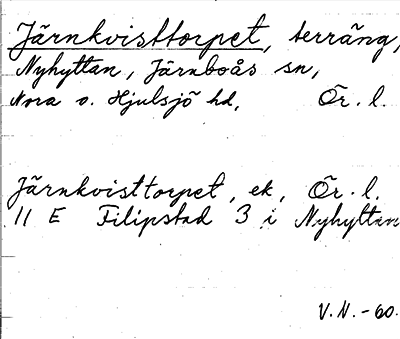 Järnkvisttorpet, terräng,
Nyhyttan, Järnboås sn,
Nora o. Hjulsjö hd, Ör. l.
Järnkvisttorpet, ek, Ör. l.
11 E Filipstad 3 i Nyhyttan
V. N. - 60.